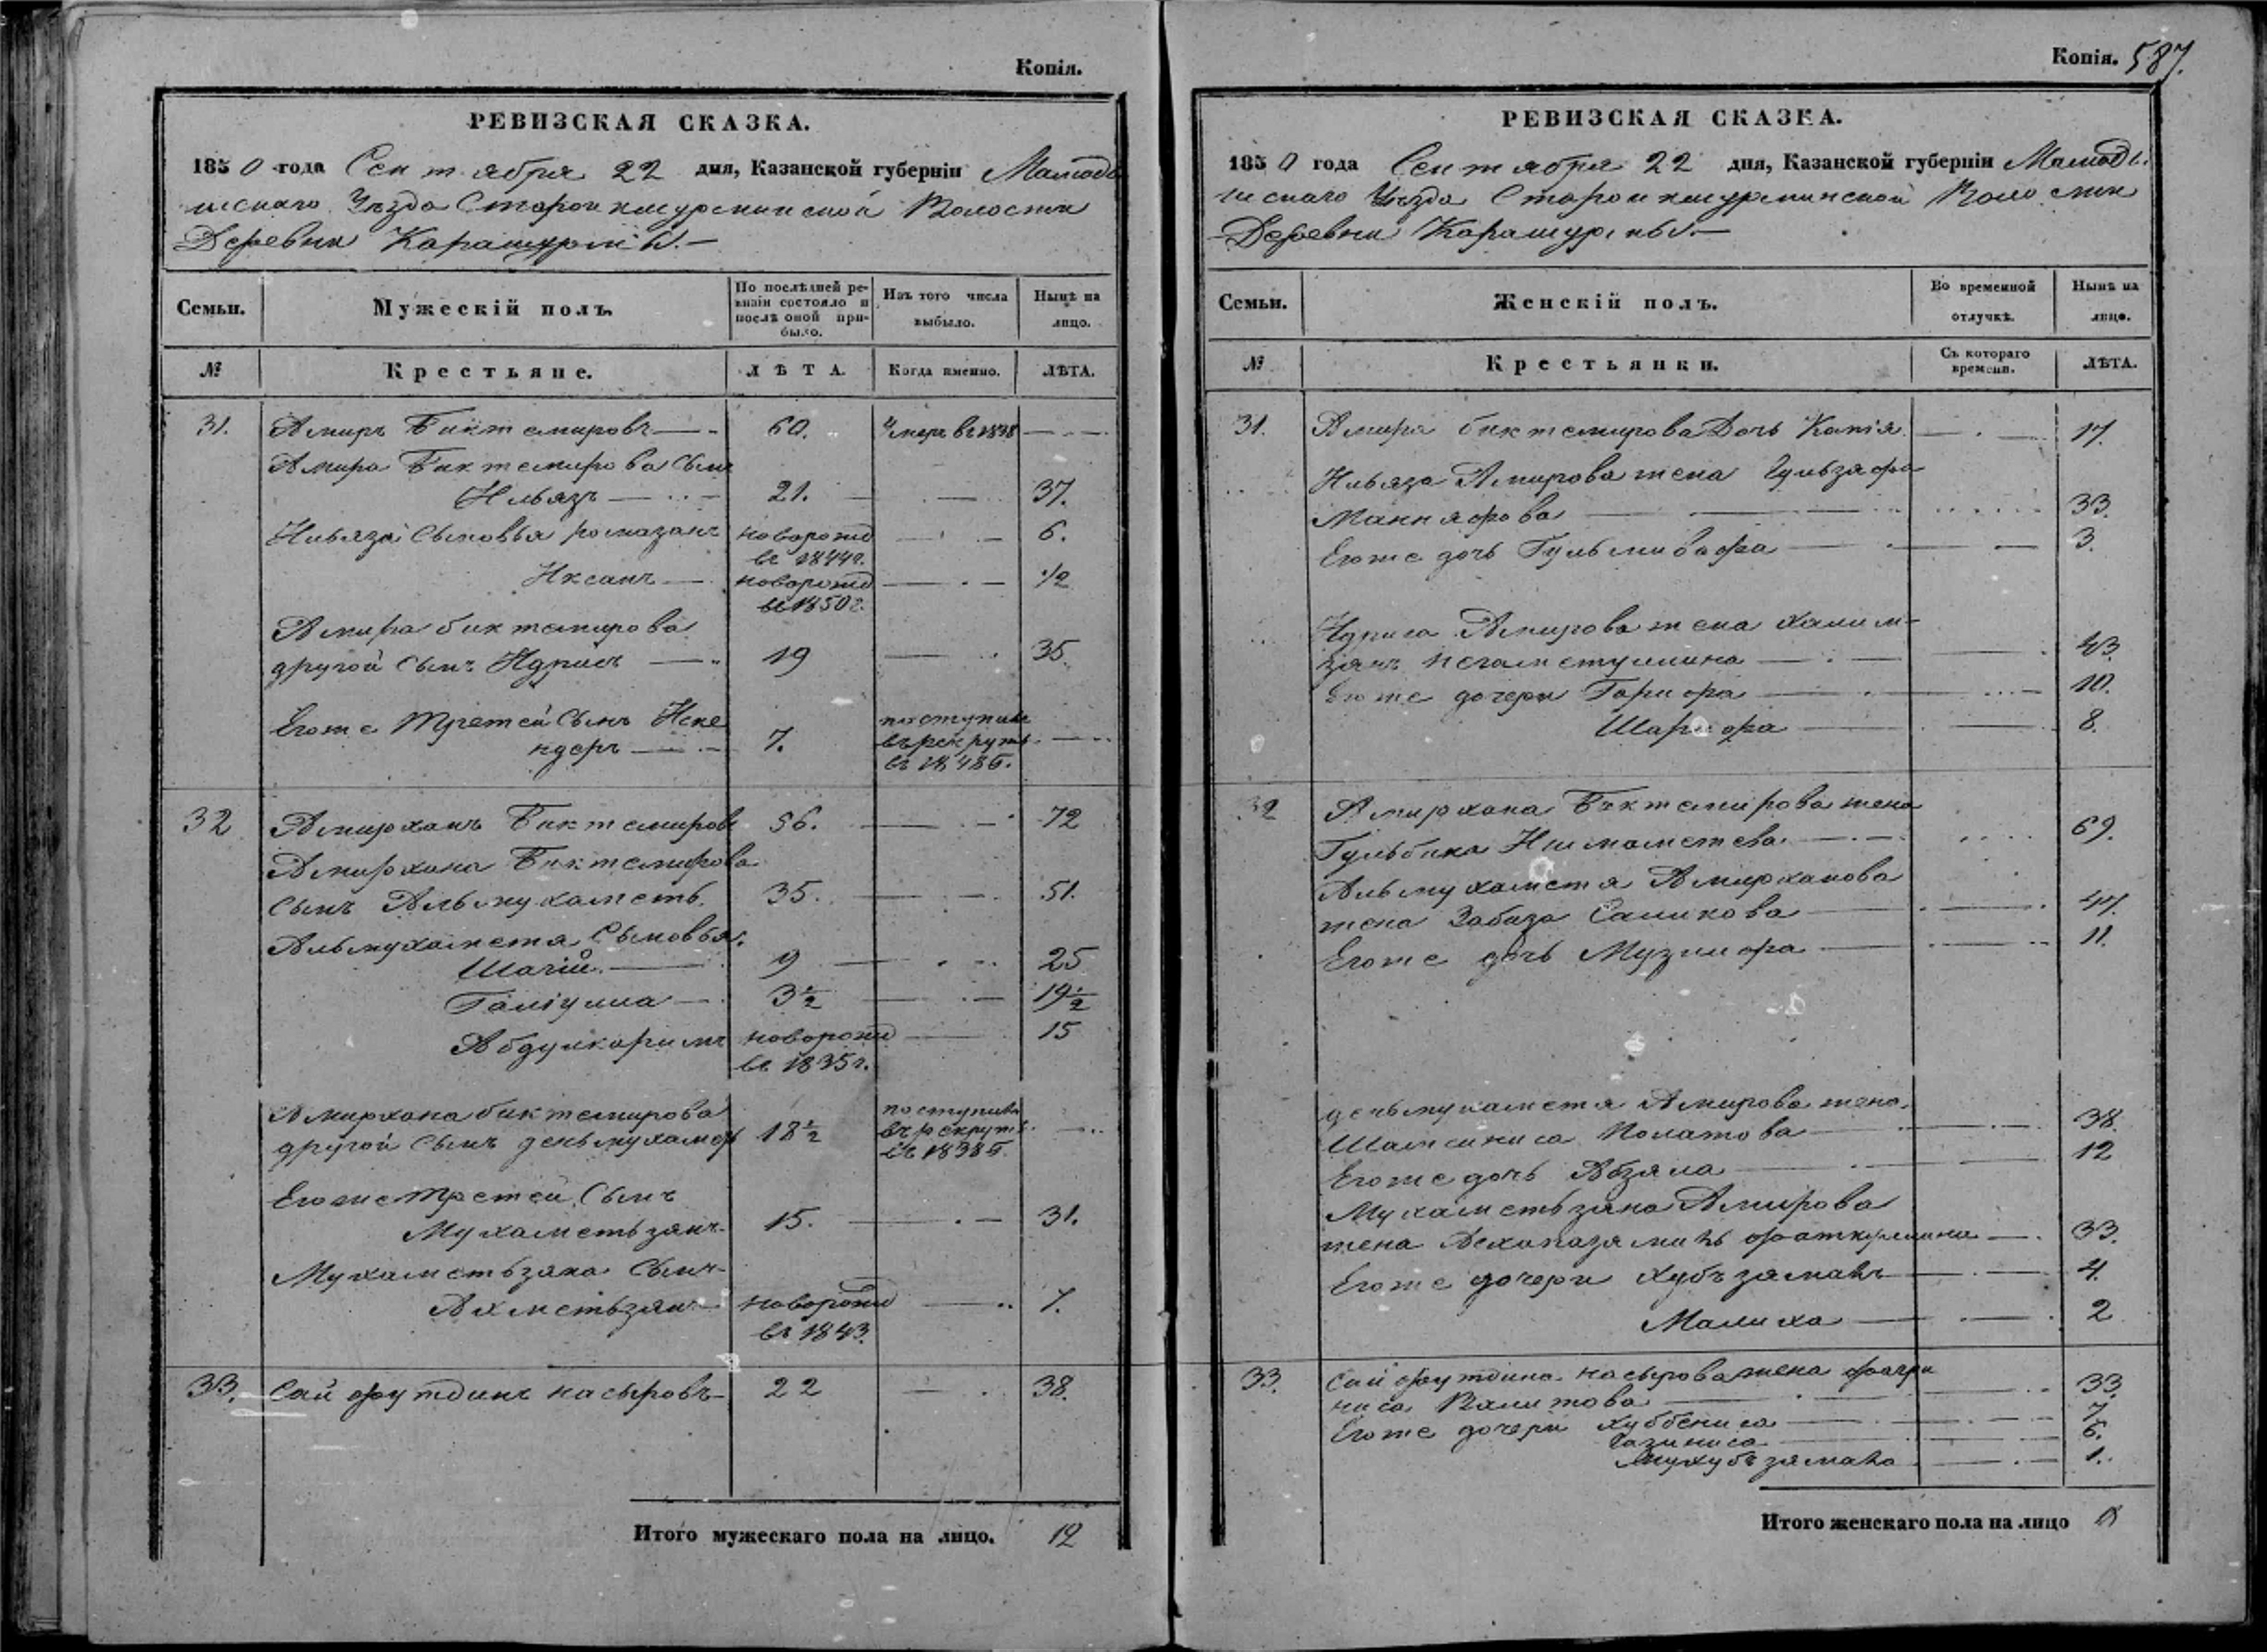 Копія.
РЕВИЗСКАЯ СКАЗКА.
1850 года Сентября 22 дня, Казанской губерніи Мамады
шскаго Уѣзда Староикшурминской Волости
Деревни Карашурмы.—
Семьи. Мужескій полъ. По послѣдней ревизіи состояло и послѣ оной прибыло. Изъ того числа выбыло. Нынѣ на лицо.
№ Крестьяне. ЛѢТА. Когда именно. ЛѢТА.
31. Амиръ Биктемировъ 60. Умеръ въ 1838
Амира Биктемирова сынъ
Ильязъ 21. 37.
Ильяза сыновья ромазанъ новорожд 6.
въ 1844г.
Иксанъ новорожд 1/2
въ 1850г.
Амира биктемирова
другой сынъ Идрисъ 19 35.
Егоже третей сынъ Искендеръ 7. поступилъ въ рекруты
32 Амирханъ Биктемировъ 56. 72
Амирхана Биктемирова
сынъ Альмухаметь 35. 51.
Альмухаметя сыновья.
Шагій 9 25
Галіулла 3 1/2 19 1/2
Абдулкаримъ новорожд 15
въ 1835г.
Амирхана биктемирова
другой сынъ 18 1/2 поступилъ въ рекруты
Егоже третей сынъ
Мухаметьзянъ 15. 31.
Мухаметьзяна сынъ
Ахметьзянъ новорожд 7.
въ 1843.
33. Сайфутдинъ насыровъ 22 38.
Итого мужескаго пола на лицо. 12
Копія. 587.
РЕВИЗСКАЯ СКАЗКА.
1850 года Сентября 22 дня, Казанской губерніи Мамады
шскаго Уѣзда Староикшурминской Волости
Деревни Карашурмы.—
Семьи. Женскій полъ. Во временной отлучкѣ. Нынѣ на лицо.
№ Крестьянки. Съ котораго времени. ЛѢТА.
31. Амира биктемирова дочь 17.
Ильяза Амирова жена Гульзяфа
Маннафова 33.
Егоже дочь 3.
Идриса Амирова жена халимзянъ 43.
Егоже дочери Гарифа 10.
Шарифа 8.
32 Амирхана Биктемирова жена
Гульбика Ишмаметева 69.
Альмухаметя Амирханова
жена Салихова 47.
Егоже дочь Музифа 11.
Амирова жена
Шамсиниса 38.
Егоже дочь Абзяла 12
Мухаметьзяна Амирова
жена фаткуллина 33.
Егоже дочери хубъзяманъ 4.
Малиха 2
33. Сайфутдина насырова жена
Валитова 33.
Егоже дочери хуббениса 7
6.
1.
Итого женскаго пола на лицо